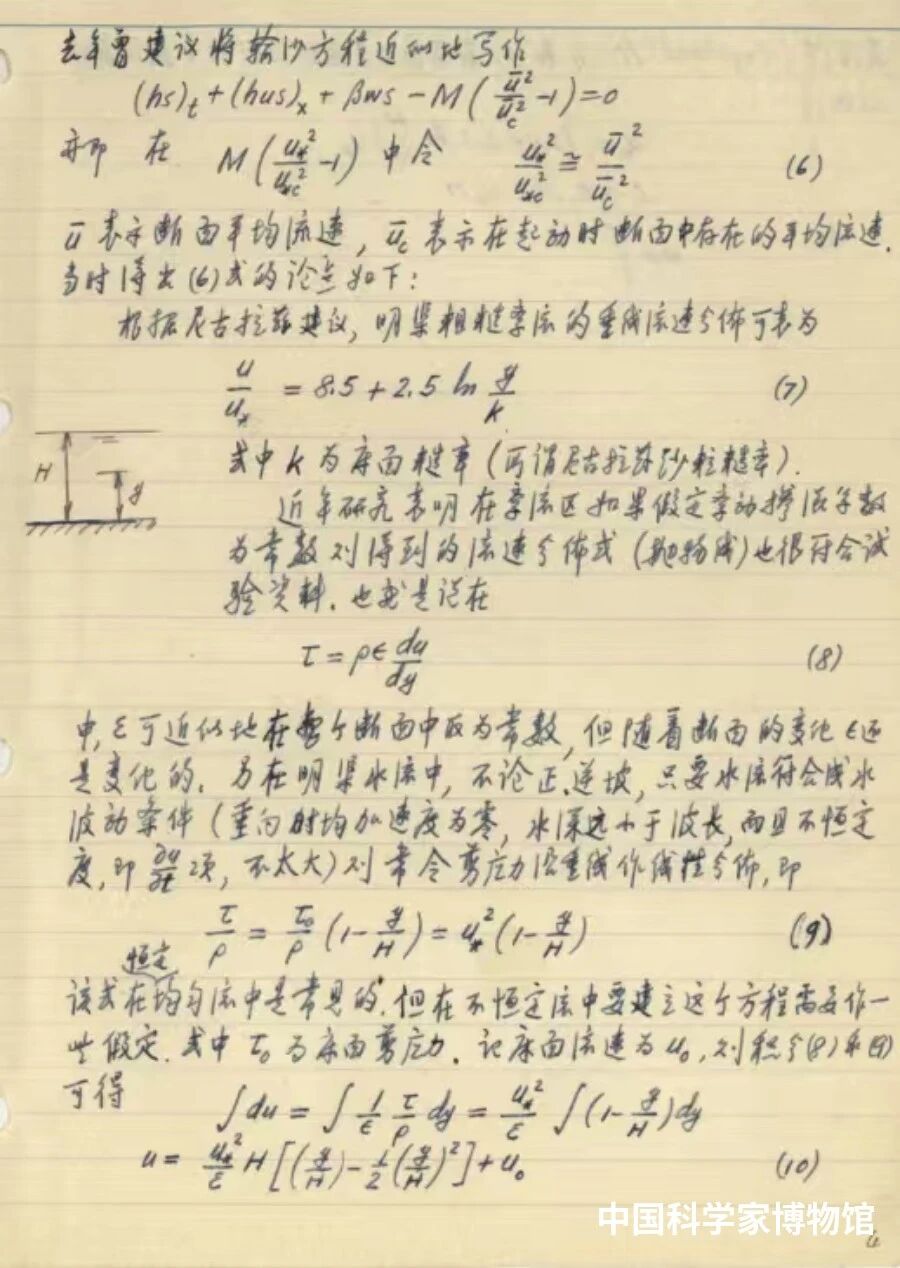 去年曾建议将输沙方程近似地写作
(hs)_t + (hus)_x + βws − M(ū²/ū_c² − 1) = 0
亦即 在 M(u_*²/u_*c² − 1) 中令 u_*²/u_*c² ≅ ū²/ū_c² (6)
ū表示断面平均流速, ū_c表示在起动时断面中存在的平均流速.
当时得出(6)式的论点如下:
根据尼古拉兹建议, 明渠粗糙紊流的垂线流速分佈可表为
u/u_* = 8.5 + 2.5 ln y/k (7)
H
y
式中k为床面糙率(所谓尼古拉兹砂粒糙率).
近年研究表明在紊流区如果假定紊动掺混系数
为常数则得到的流速分佈式(抛物线)也很符合试
验资料. 也就是说在
τ = ρϵ du/dy (8)
中, ε可近似地在整个断面中取为常数, 但随着断面的变化ϵ还
是变化的. 另在明渠水流中, 不论正.逆坡, 只要水流符合浅水
波动条件(垂向时均加速度为零, 水深远小于波长, 而且不恒定
度, 即 ∂u/∂t 项, 不太大)则常令剪应力沿垂线作线性分佈, 即
τ/ρ = τ₀/ρ (1 − y/H) = u_*² (1 − y/H) (9)
恒定
该式在均匀流中是常见的. 但在不恒定流中要建立这个方程需要作一
些假定. 式中τ₀为床面剪应力. 记床面流速为u₀, 则积分(8)和(9)
可得
∫du = ∫ 1/ϵ τ/ρ dy = u_*²/ε ∫(1 − y/H)dy
u = u_*²/ε H[(y/H) − 1/2 (y/H)²] + u₀ (10)
中国科学家博物馆